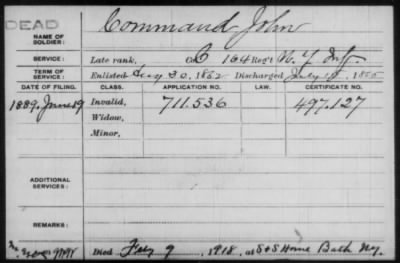 DEAD
NAME OF SOLDIER: Command John
SERVICE: Late rank, Co C 164 Reg't N.Y. Inf.
TERM OF SERVICE: Enlisted Aug 30, 1862 Discharged July 15, 1865
DATE OF FILING. CLASS. APPLICATION NO. LAW. CERTIFICATE NO.
1889. June 19 Invalid, 711.536 497.127
Widow,
Minor,
ADDITIONAL SERVICES:
REMARKS:
Died Feby 9, 1918, at S & S Home Bath Ny.